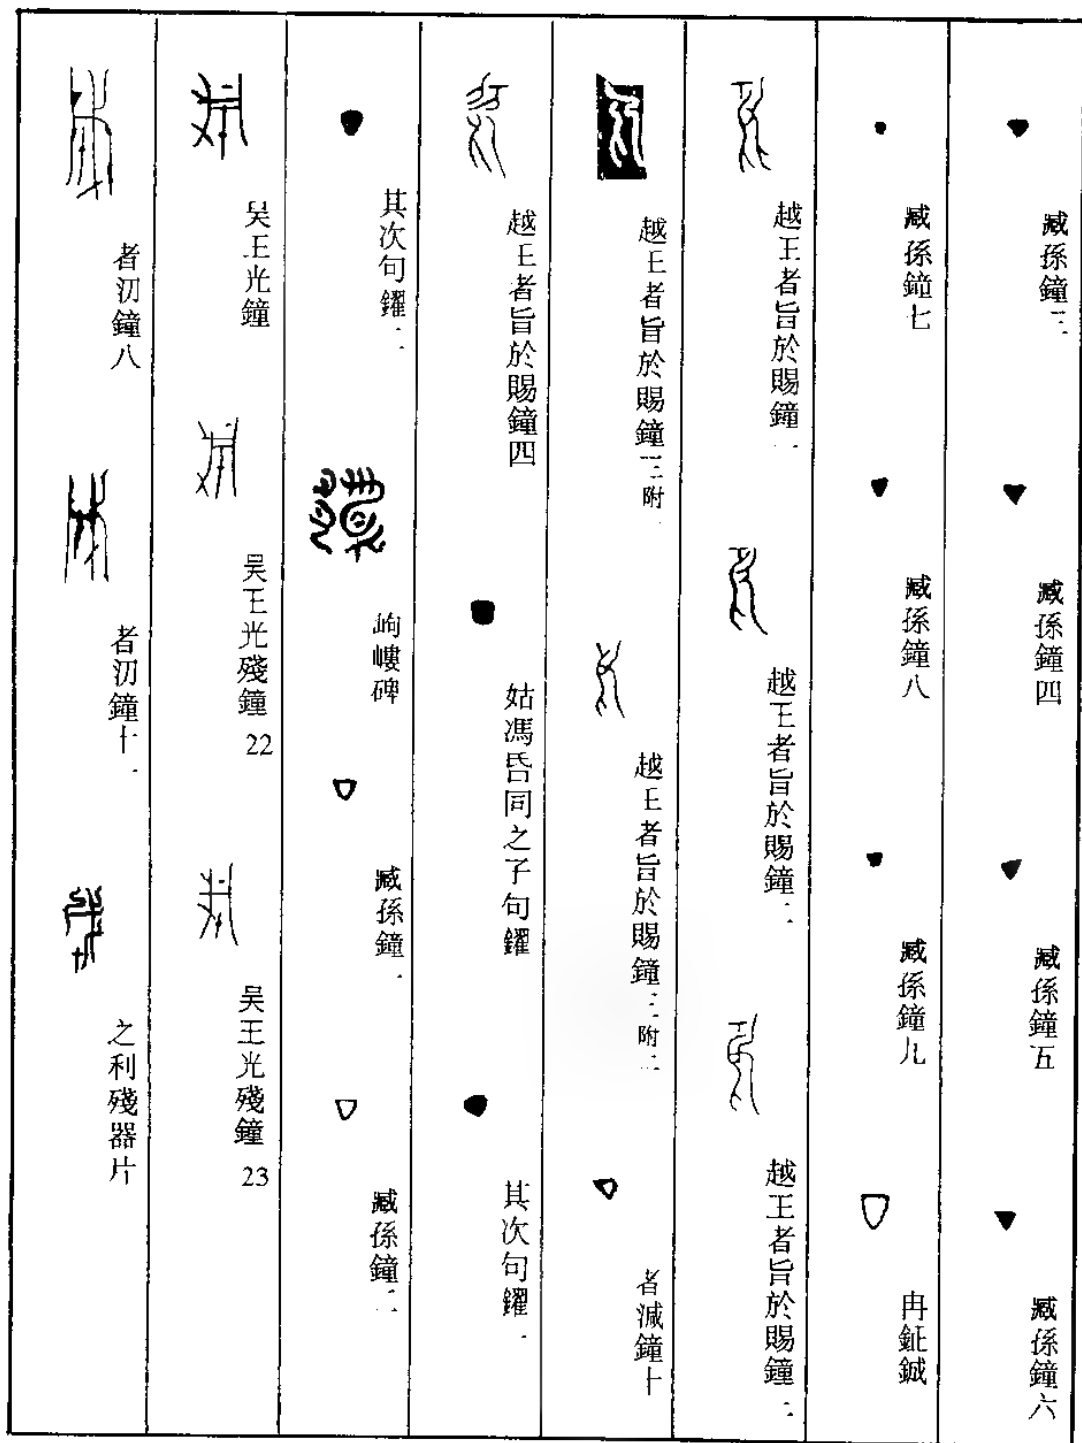 臧孫鐘三
臧孫鐘四
臧孫鐘五
臧孫鐘六
臧孫鐘七
臧孫鐘八
臧孫鐘九
冉鉦鋮
越王者旨於賜鐘一
越王者旨於賜鐘二
越王者旨於賜鐘三
越王者旨於賜鐘三附一
越王者旨於賜鐘三附二
者減鐘十
越王者旨於賜鐘四
姑馮昏同之子句鑃
其次句鑃一
其次句鑃二
岣嶁碑
臧孫鐘一
臧孫鐘二
吳王光鐘
吳王光殘鐘22
吳王光殘鐘23
者汈鐘八
者汈鐘十一
之利殘器片